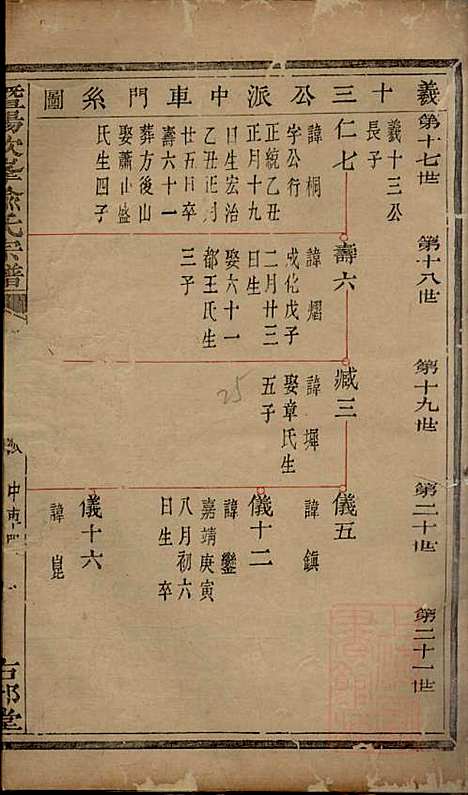 義十三公派中車門系圖
第十七世
第十八世
第十九世
第二十世
第二十一世
義十三公
長子
仁七
諱桐
字公行
正統乙丑
正月十九
日生宏治
乙丑正月
廿五日卒
壽六十一
葬方後山
娶蕭山盛
氏生四子
壽六
諱熠
成化戊子
二月廿三
日生
娶六十一
都王氏生
三子
臧三
諱墀
娶章氏生
五子
25
儀五
諱鎮
儀十二
諱鑾
嘉靖庚寅
八月初六
日生卒
儀十六
諱崑
暨陽
氏宗譜
中車門
堂